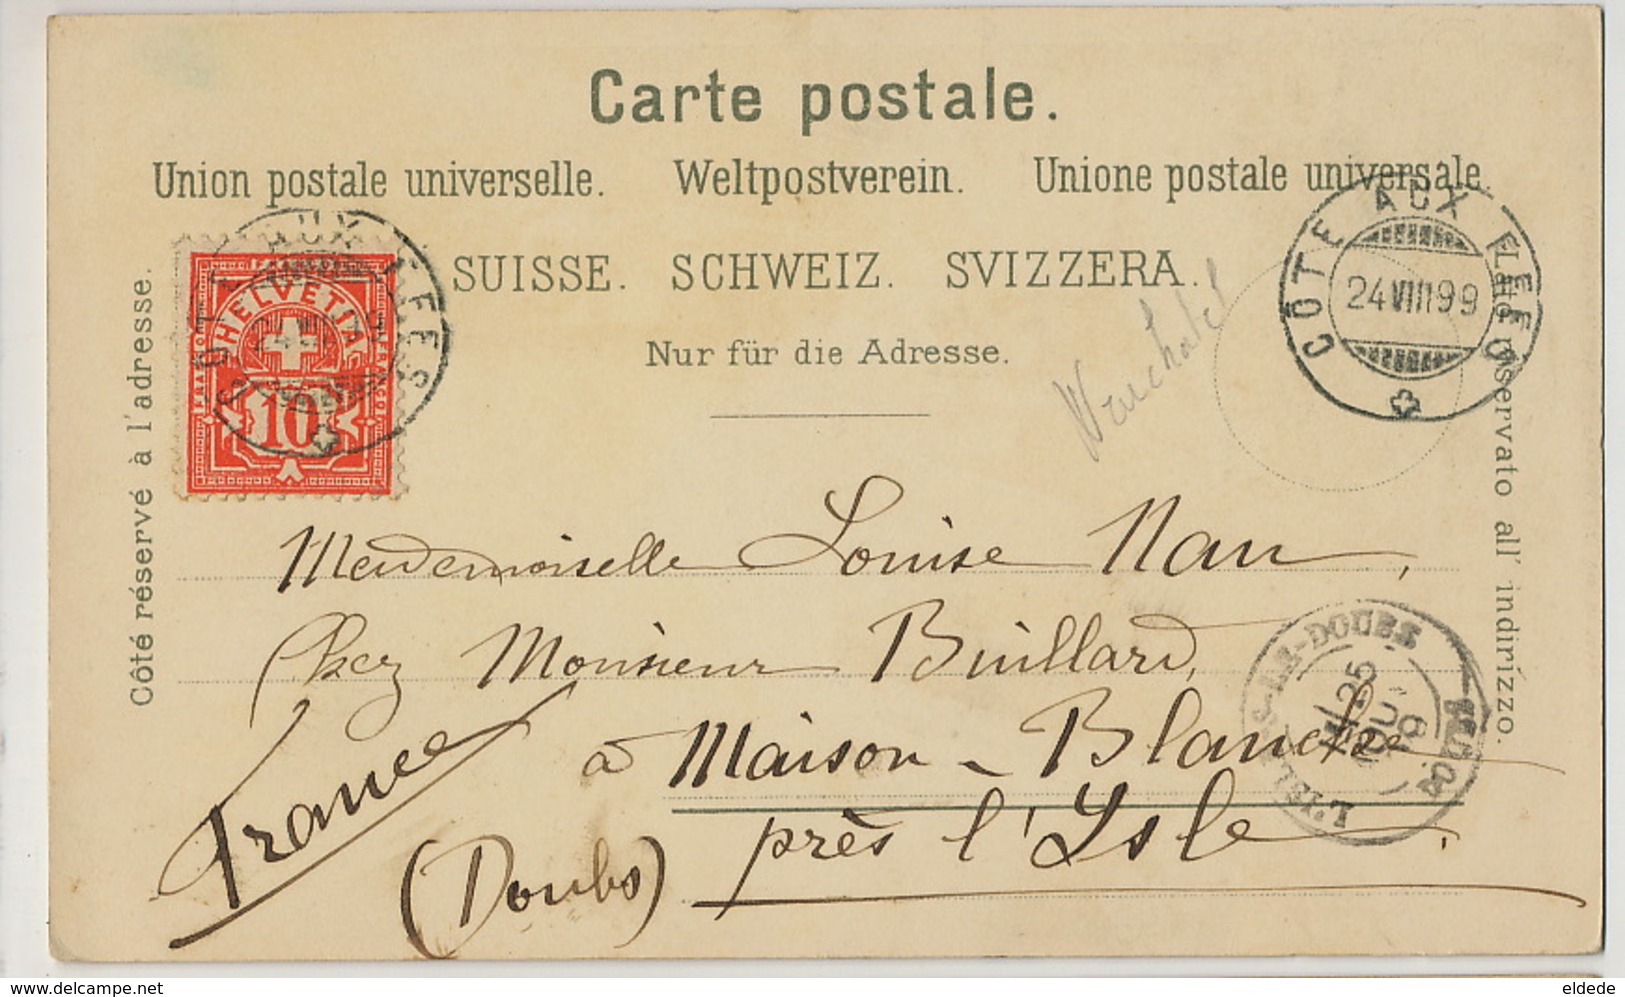 Carte postale.
Union postale universelle. Weltpostverein. Unione postale universale.
SUISSE. SCHWEIZ. SVIZZERA.
Nur für die Adresse.
Côté réservé à l'adresse.
Lato riservato all' indirizzo.
HELVETIA
FRANCO
10
CÔTE AUX FÉES
CÔTE AUX FÉES
24 VIII 99
Mademoiselle Louise Nau,
Chez Monsieur Buillard,
à Maison-Blanche
près l'Ysle.
(Doubs)
France
L'ISLE-S-LE-DOUBS
25
DOUBS
www.delcampe.net
eldede